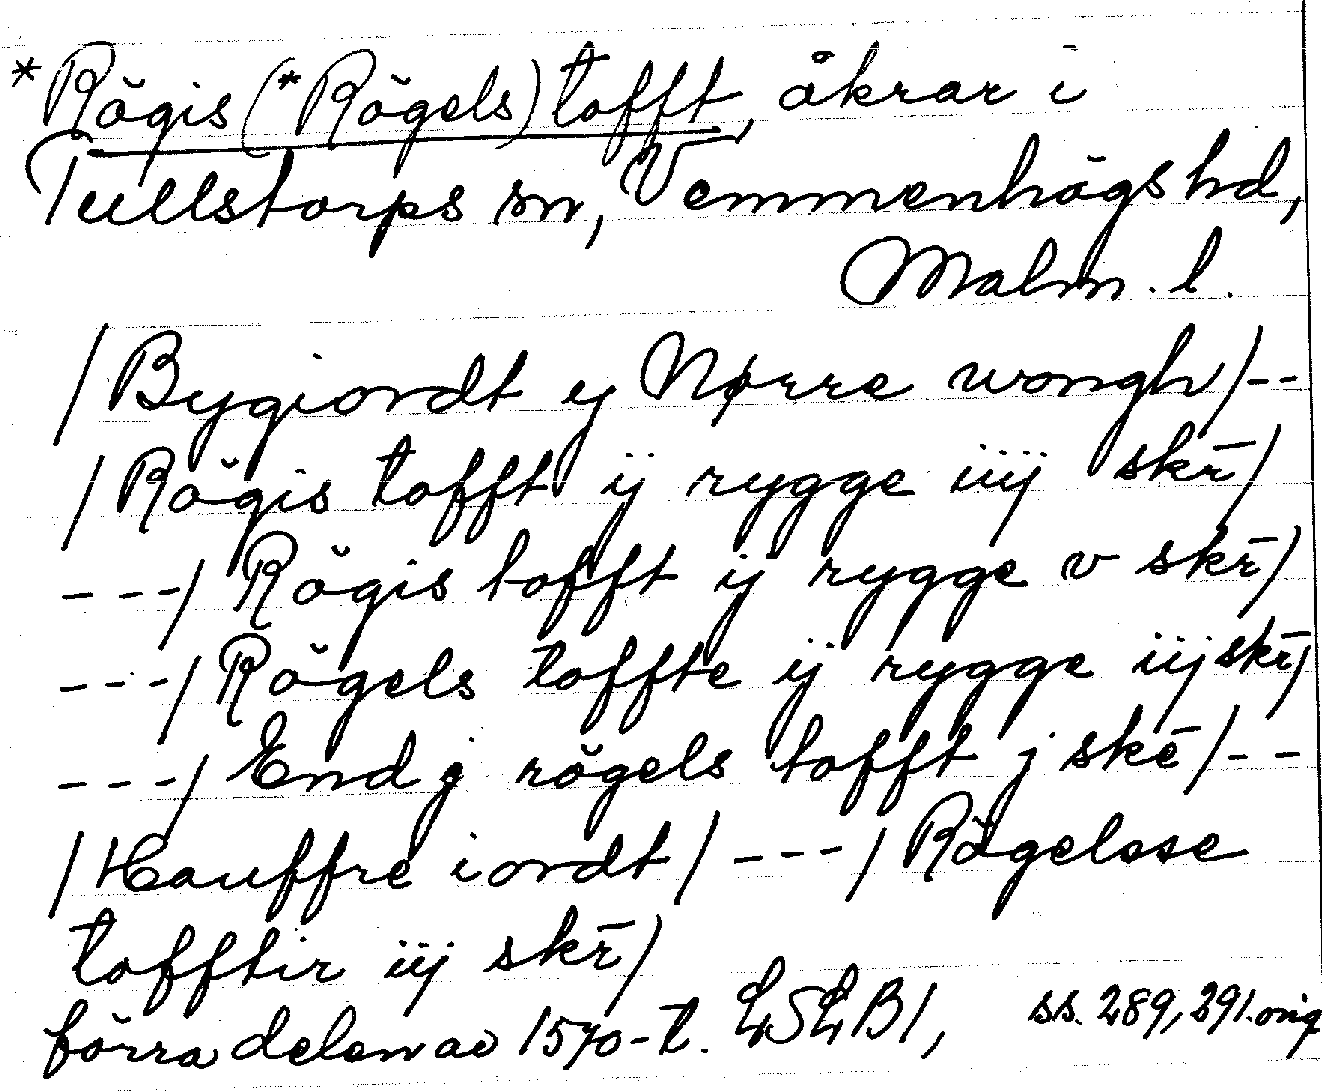 *Rögis (*Rögels) tofft, åkrar i
Tullstorps sn, Vemmenhögs hd,
Malm. l.
/Bygiordt ij Nørre wongh/--
/Rögis tofft ij rygge iiij skr̄/
---/Rögis tofft ij rygge v skr̄/
---/Rögels toffte ij rygge iij skr̄/
---/End j rögels tofft j skē/--
/Hauffre iordt/---/Rögelsse
tofftir iij skr̄/
förra delen av 1570-t. LSLB1, ss. 289, 291. orig